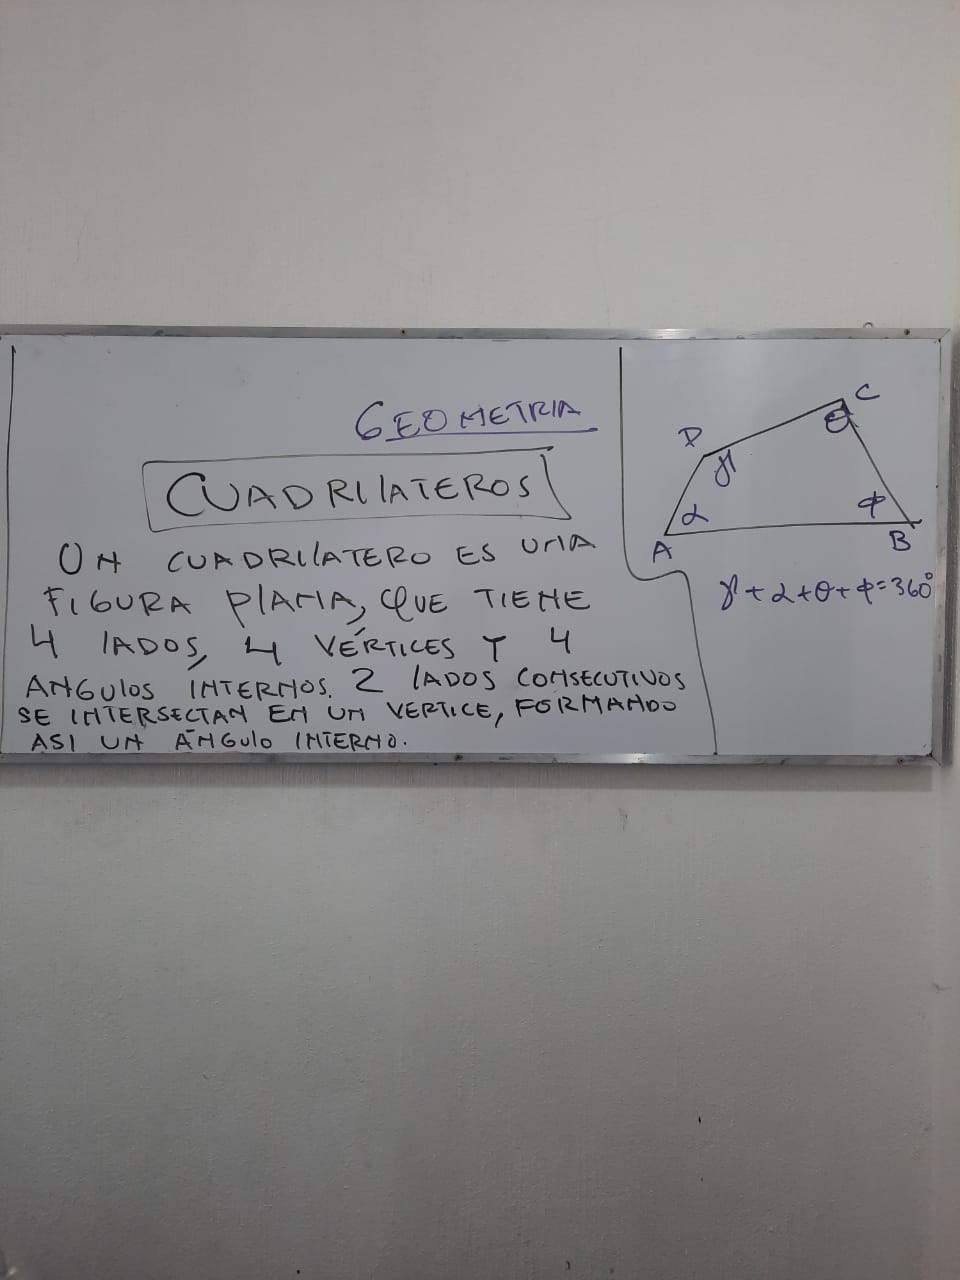 GEOMETRIA
CUADRILATEROS
UN CUADRILATERO ES UNA
FIGURA PLANA, QUE TIENE
4 LADOS, 4 VÉRTICES Y 4
ANGULOS INTERNOS. 2 LADOS CONSECUTIVOS
SE INTERSECTAN EN UN VERTICE, FORMANDO
ASI UN ÁNGULO INTERNO.
C
θ
D
γ
α
ϕ
A
B
γ + α + θ + ϕ = 360°